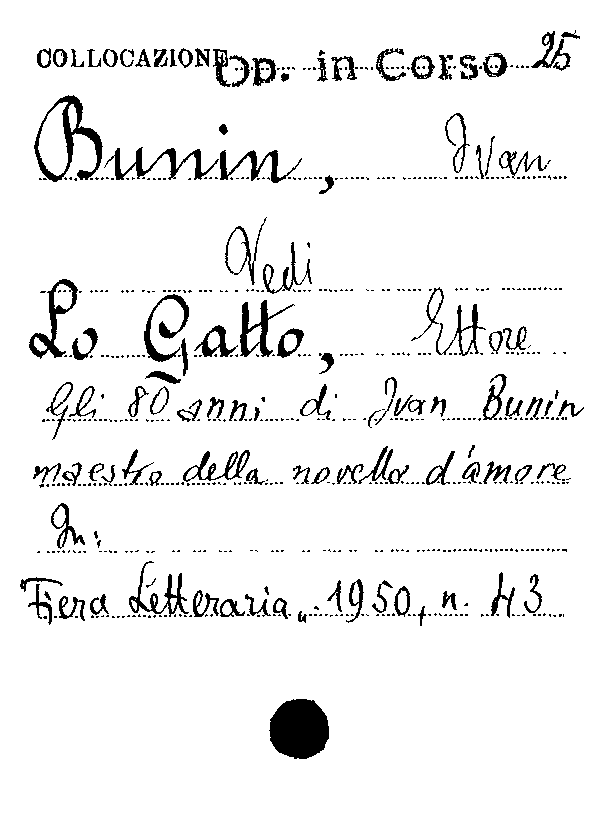 COLLOCAZIONE Op. in Corso 25
Bunin, Ivan
Vedi
Lo Gatto, Ettore
Gli 80 anni di Ivan Bunin
maestro della novella d'amore
In:
"Fiera Letteraria„ 1950, n. 43